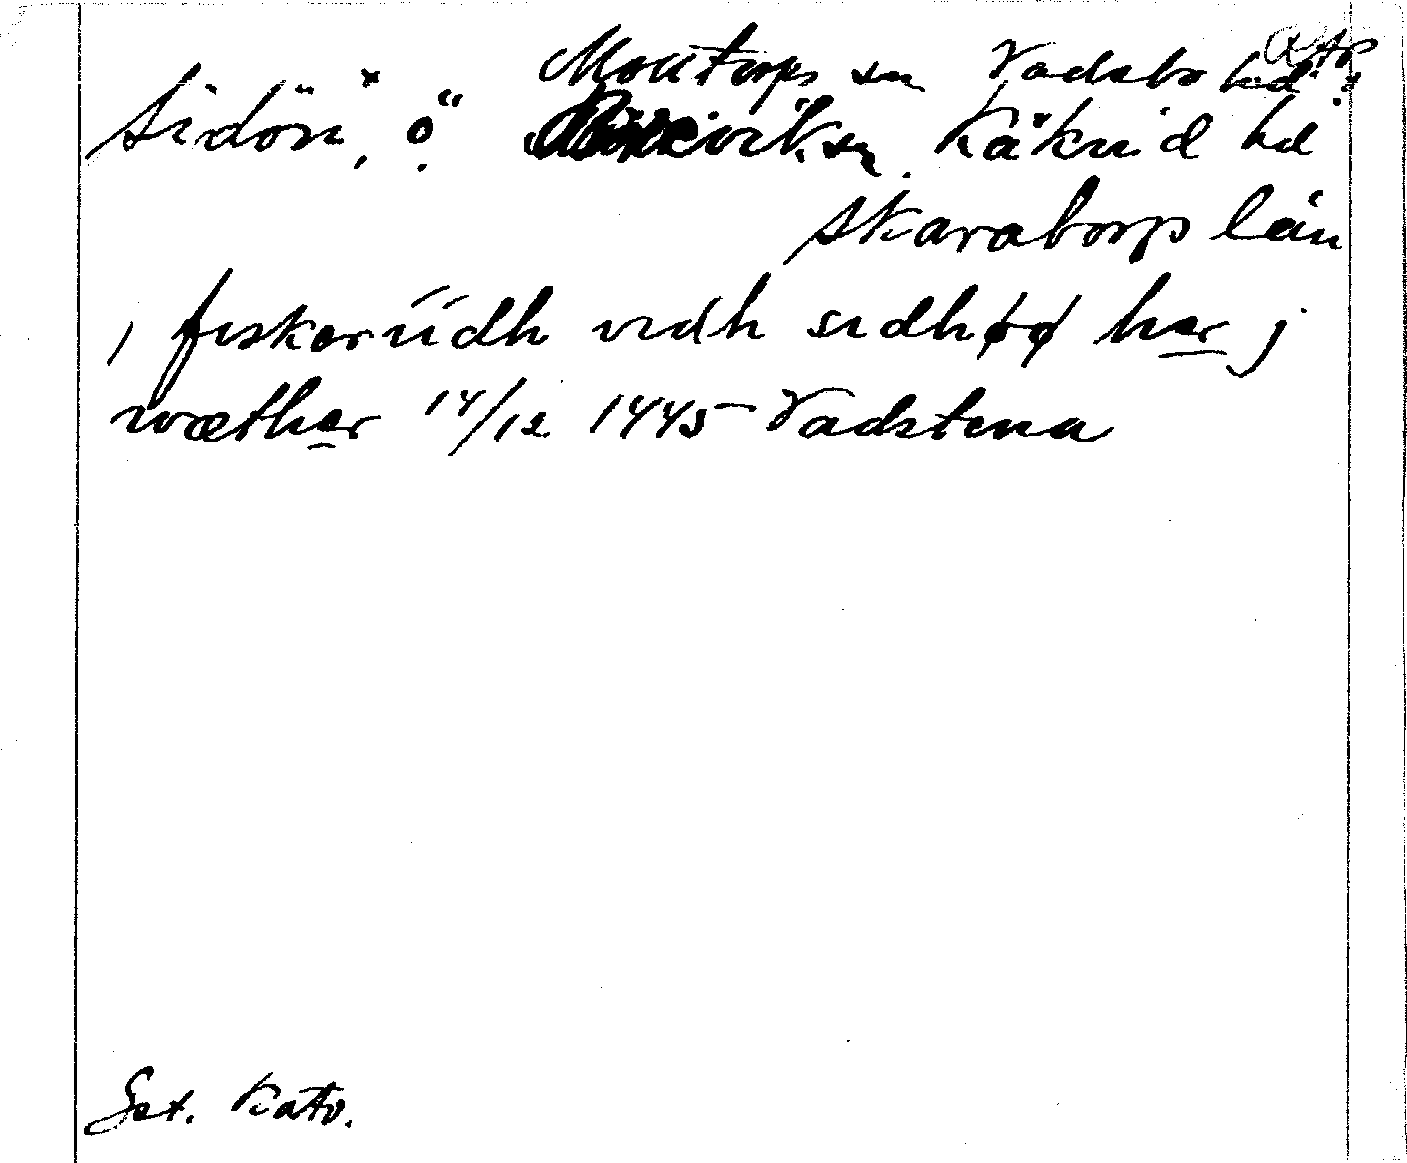 Moutorps sn Vadsbo hd
Sidön, ö. viks sn. Kåkinds hd
Skaraborgs län
i fiskeriidh vidh sidhøø her j
wæther 14/12 1445 Vadstena
Sex. Kato.